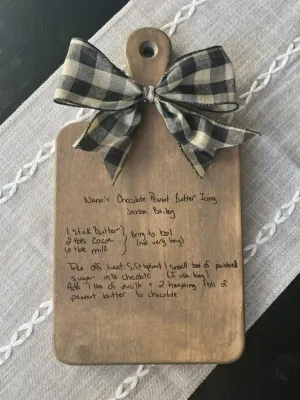 Nana's Chocolate Peanut Butter Icing
1 stick Butter
2 tbls Cocoa
6 tbls milk
Bring to boil
(not very long)
Take off heat, Sift 1 small box of powdered
sugar into chocolate (I use bag)
Add 1 tbs of vanilla + 2 heaping tbls of
peanut butter to chocolate